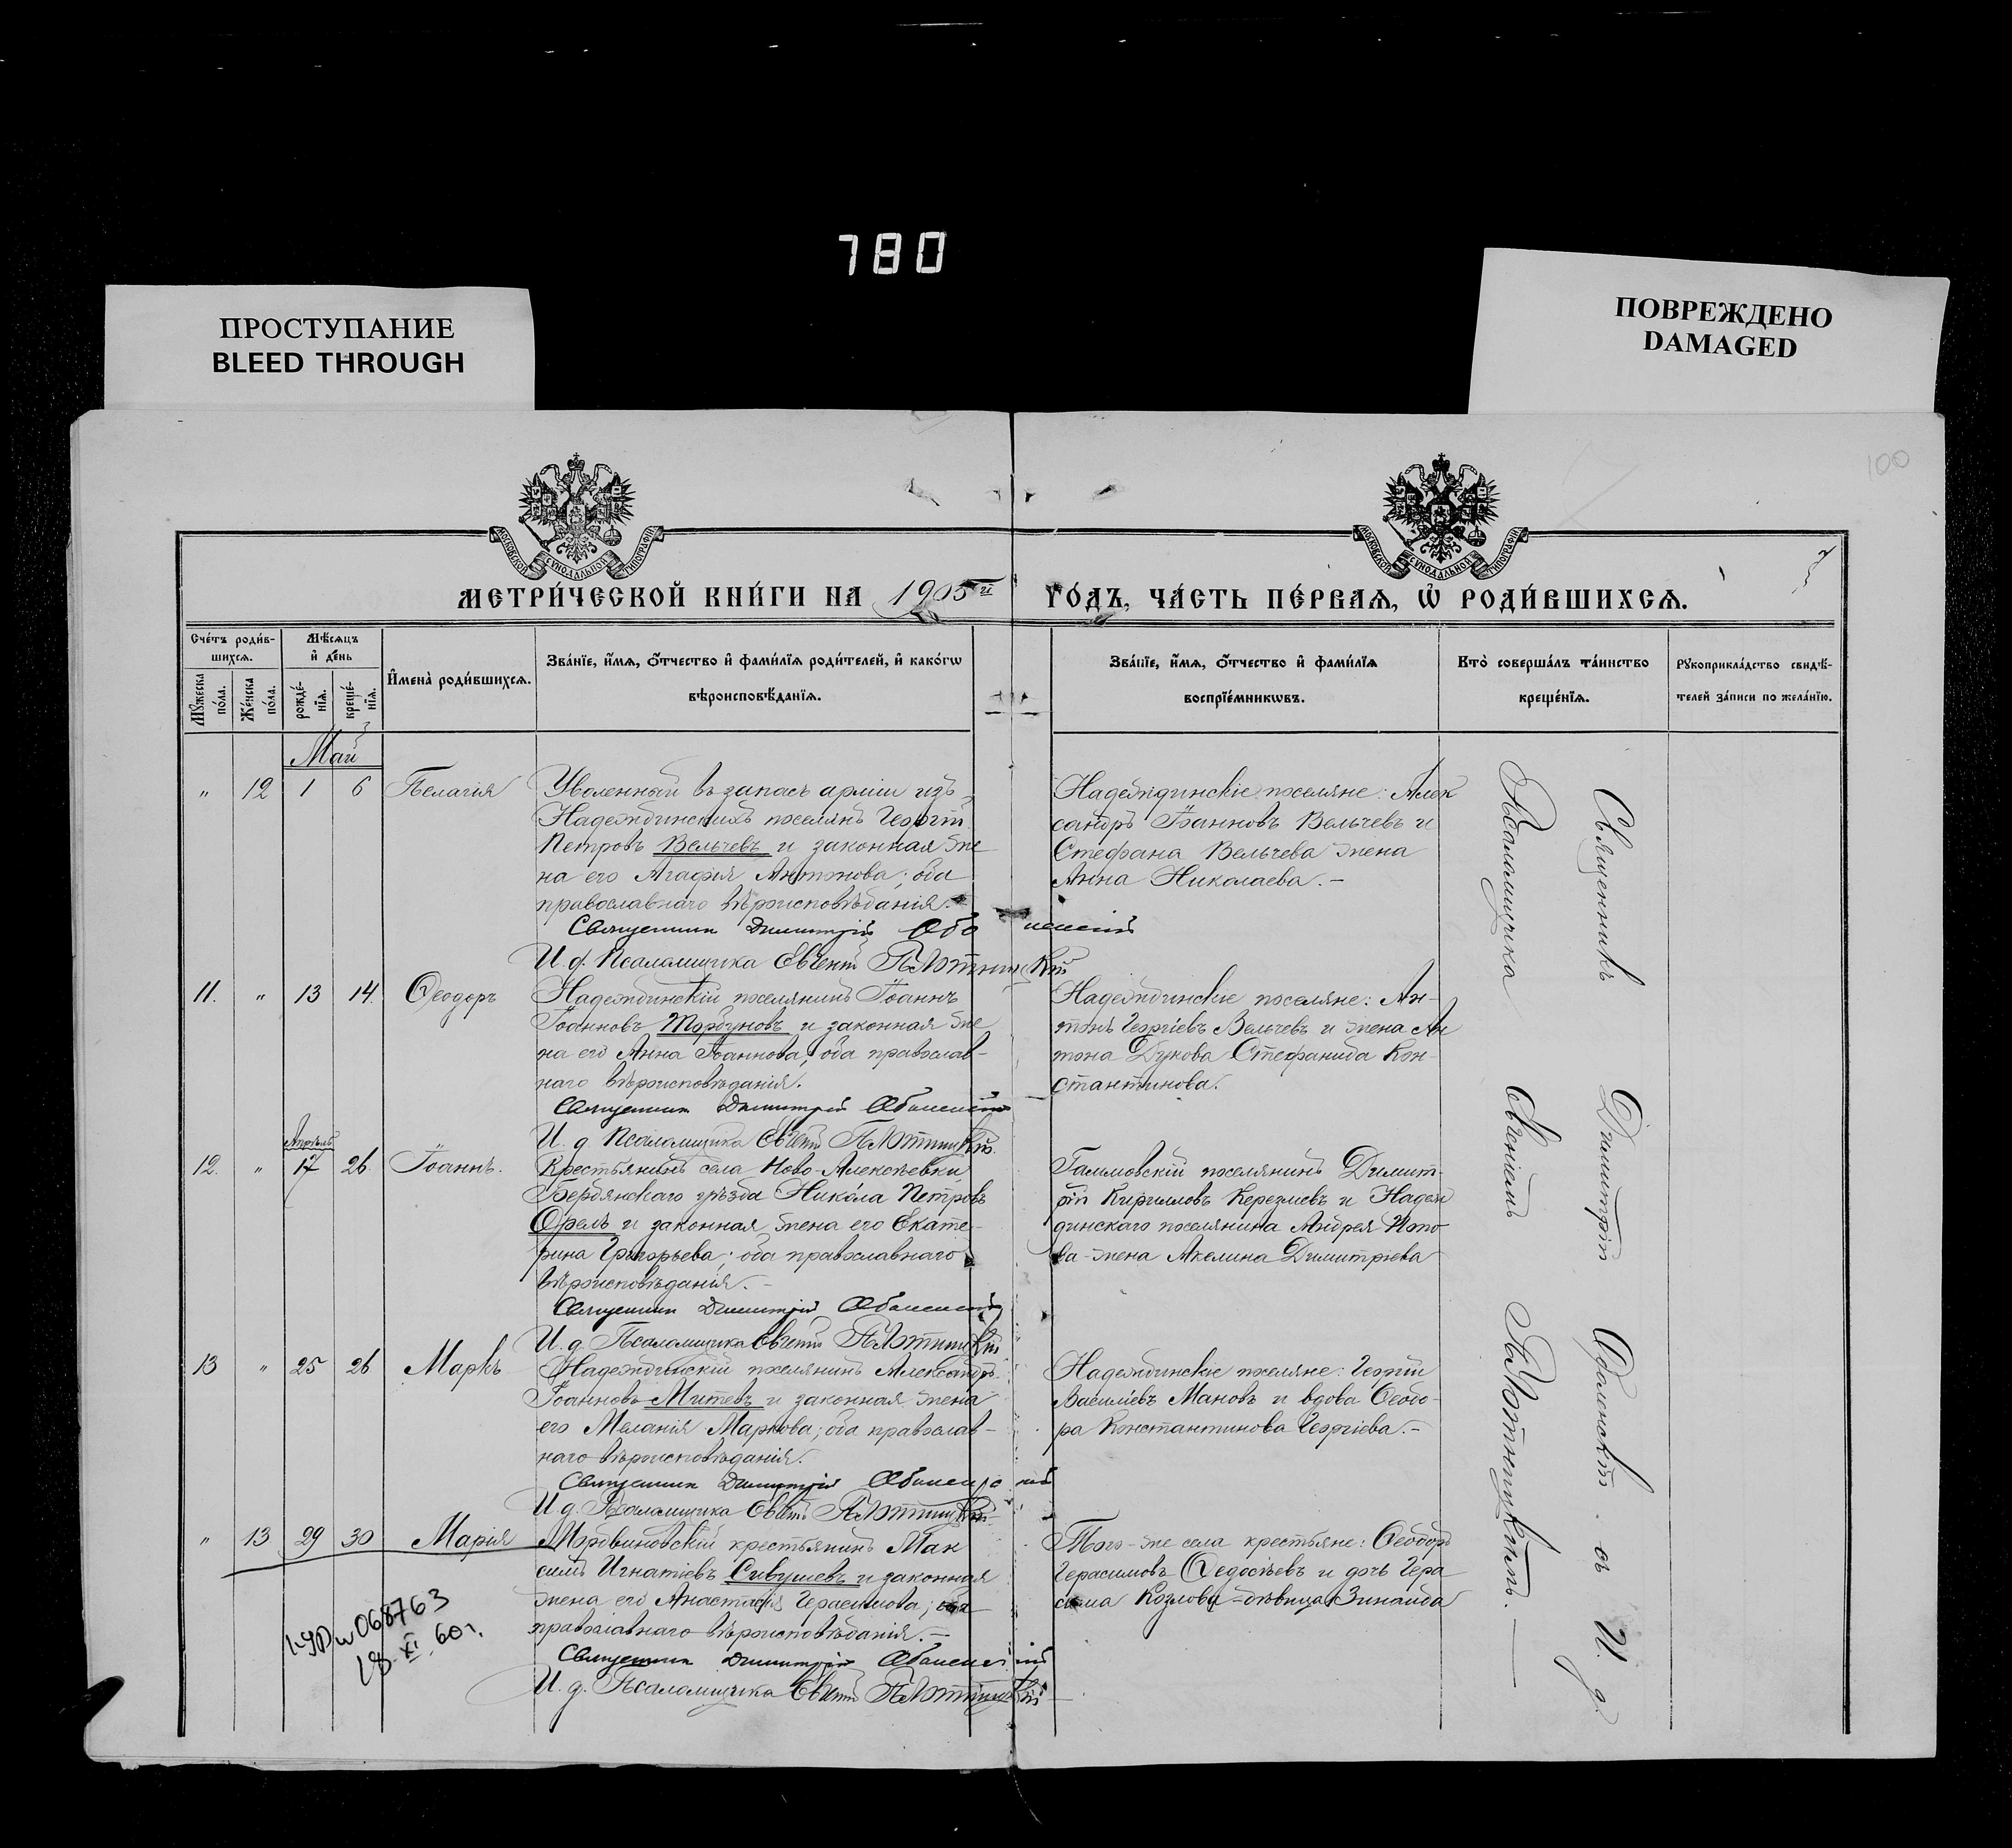 780
ПРОСТУПАНИЕ
BLEED THROUGH
ПОВРЕЖДЕНО
DAMAGED
100
МОСКОВСКОЙ СУНОДАЛЬНОЙ ТИПОГРАФІИ
МОСКОВСКОЙ СУНОДАЛЬНОЙ ТИПОГРАФІИ
МЕТРИ́ЧЕСКОЙ КНИ́ГИ НА 1905й ГО́ДЪ, ЧА́СТЬ ПЕ́РВАЯ, Ѡ РОДИ́ВШИХСЯ.
Сче́тъ роди́в-
шихся.
Мѣ́сяцъ
и҆ де́нь
Мꙋ́жеска
по́ла.
Же́нска
по́ла.
рожде́-
нїя.
креще́-
нїя.
И҆мена̀ роди́вшихся.
Зва́нїе, и҆́мя, ѻ҆́тчество и҆ фами́лїя роди́телей, и҆ како́гѡ
вѣроисповѣ́данїя.
Зва́нїе, и҆́мя, ѻ҆́тчество и҆ фами́лїя
воспрїе́мникѡвъ.
Кто̀ соверша́лъ та́инство
креще́нїя.
Рꙋкоприкла́дство свидѣ́-
телей за́писи по жела́нїю.
Май
" 12 1 6 Пелагія
Уволенный въ запасъ арміи изъ
Надеждинскихъ поселянъ Георгій
Петровъ Вельчевъ и законная же
на его Агафія Антонова; оба
православнаго вѣроисповѣданія.
Священник Димитрій
И. д. Псаломщика Евгеній
Надеждинскіе поселяне: Алек
сандръ Іоанновъ Вельчевъ и
Стефана Вельчева жена
Анна Николаева. -
11. " 13 14. Ѳеодоръ
Надеждинскій поселянинъ Іоаннъ
Іоанновъ Торбуновъ и законная же
на его Анна Іоаннова; оба православ-
наго вѣроисповѣданія.
Священник Димитрій
И. д. Псаломщика Евгеній
Надеждинскіе поселяне: Ан-
тонъ Георгіевъ Вельчевъ и жена Ан
тона Дукова Стефанида Кон-
стантинова.
Апрѣль
12. " 17 26. Іоаннъ.
Крестьянинъ села Ново-Алексѣевки,
Бердянскаго уѣзда Никола Петровъ
Орелъ и законная жена его Екате-
рина Григорьева; оба православнаго
вѣроисповѣданія. -
Священник Димитрій
И. д. Псаломщика Евгеній
поселянинъ Димит-
рій Кирилловъ и Надеж
динскаго поселянина Андрея Попо
ва жена Акелина Димитріева
13 " 25 26 Маркъ
Надеждинскій поселянинъ Александръ
Іоанновъ Митевъ и законная жена
его Меланія Маркова; оба православ-
наго вѣроисповѣданія.
Священник Димитрій
И. д. Псаломщика Евгеній
Надеждинскіе поселяне: Георгій
Василіевъ Мановъ и вдова Ѳеодо-
ра Константинова Георгіева. -
" 13 29 30 Марія
Мордвиновскій крестьянинъ Мак
симъ Игнатіевъ Сивушевъ и законная
жена его Анастасія Герасимова; оба
православнаго вѣроисповѣданія. -
Священник Димитрій
И. д. Псаломщика Евгеній
Того-же села крестьяне: Ѳеодоръ
Герасимовъ Ѳедосѣевъ и дочь Гера
сима Козлова дѣвица Зинаида
068763
18 XI 60 г.
Священникъ Димитрій съ И. д.
Псаломщика Евгеніемъ